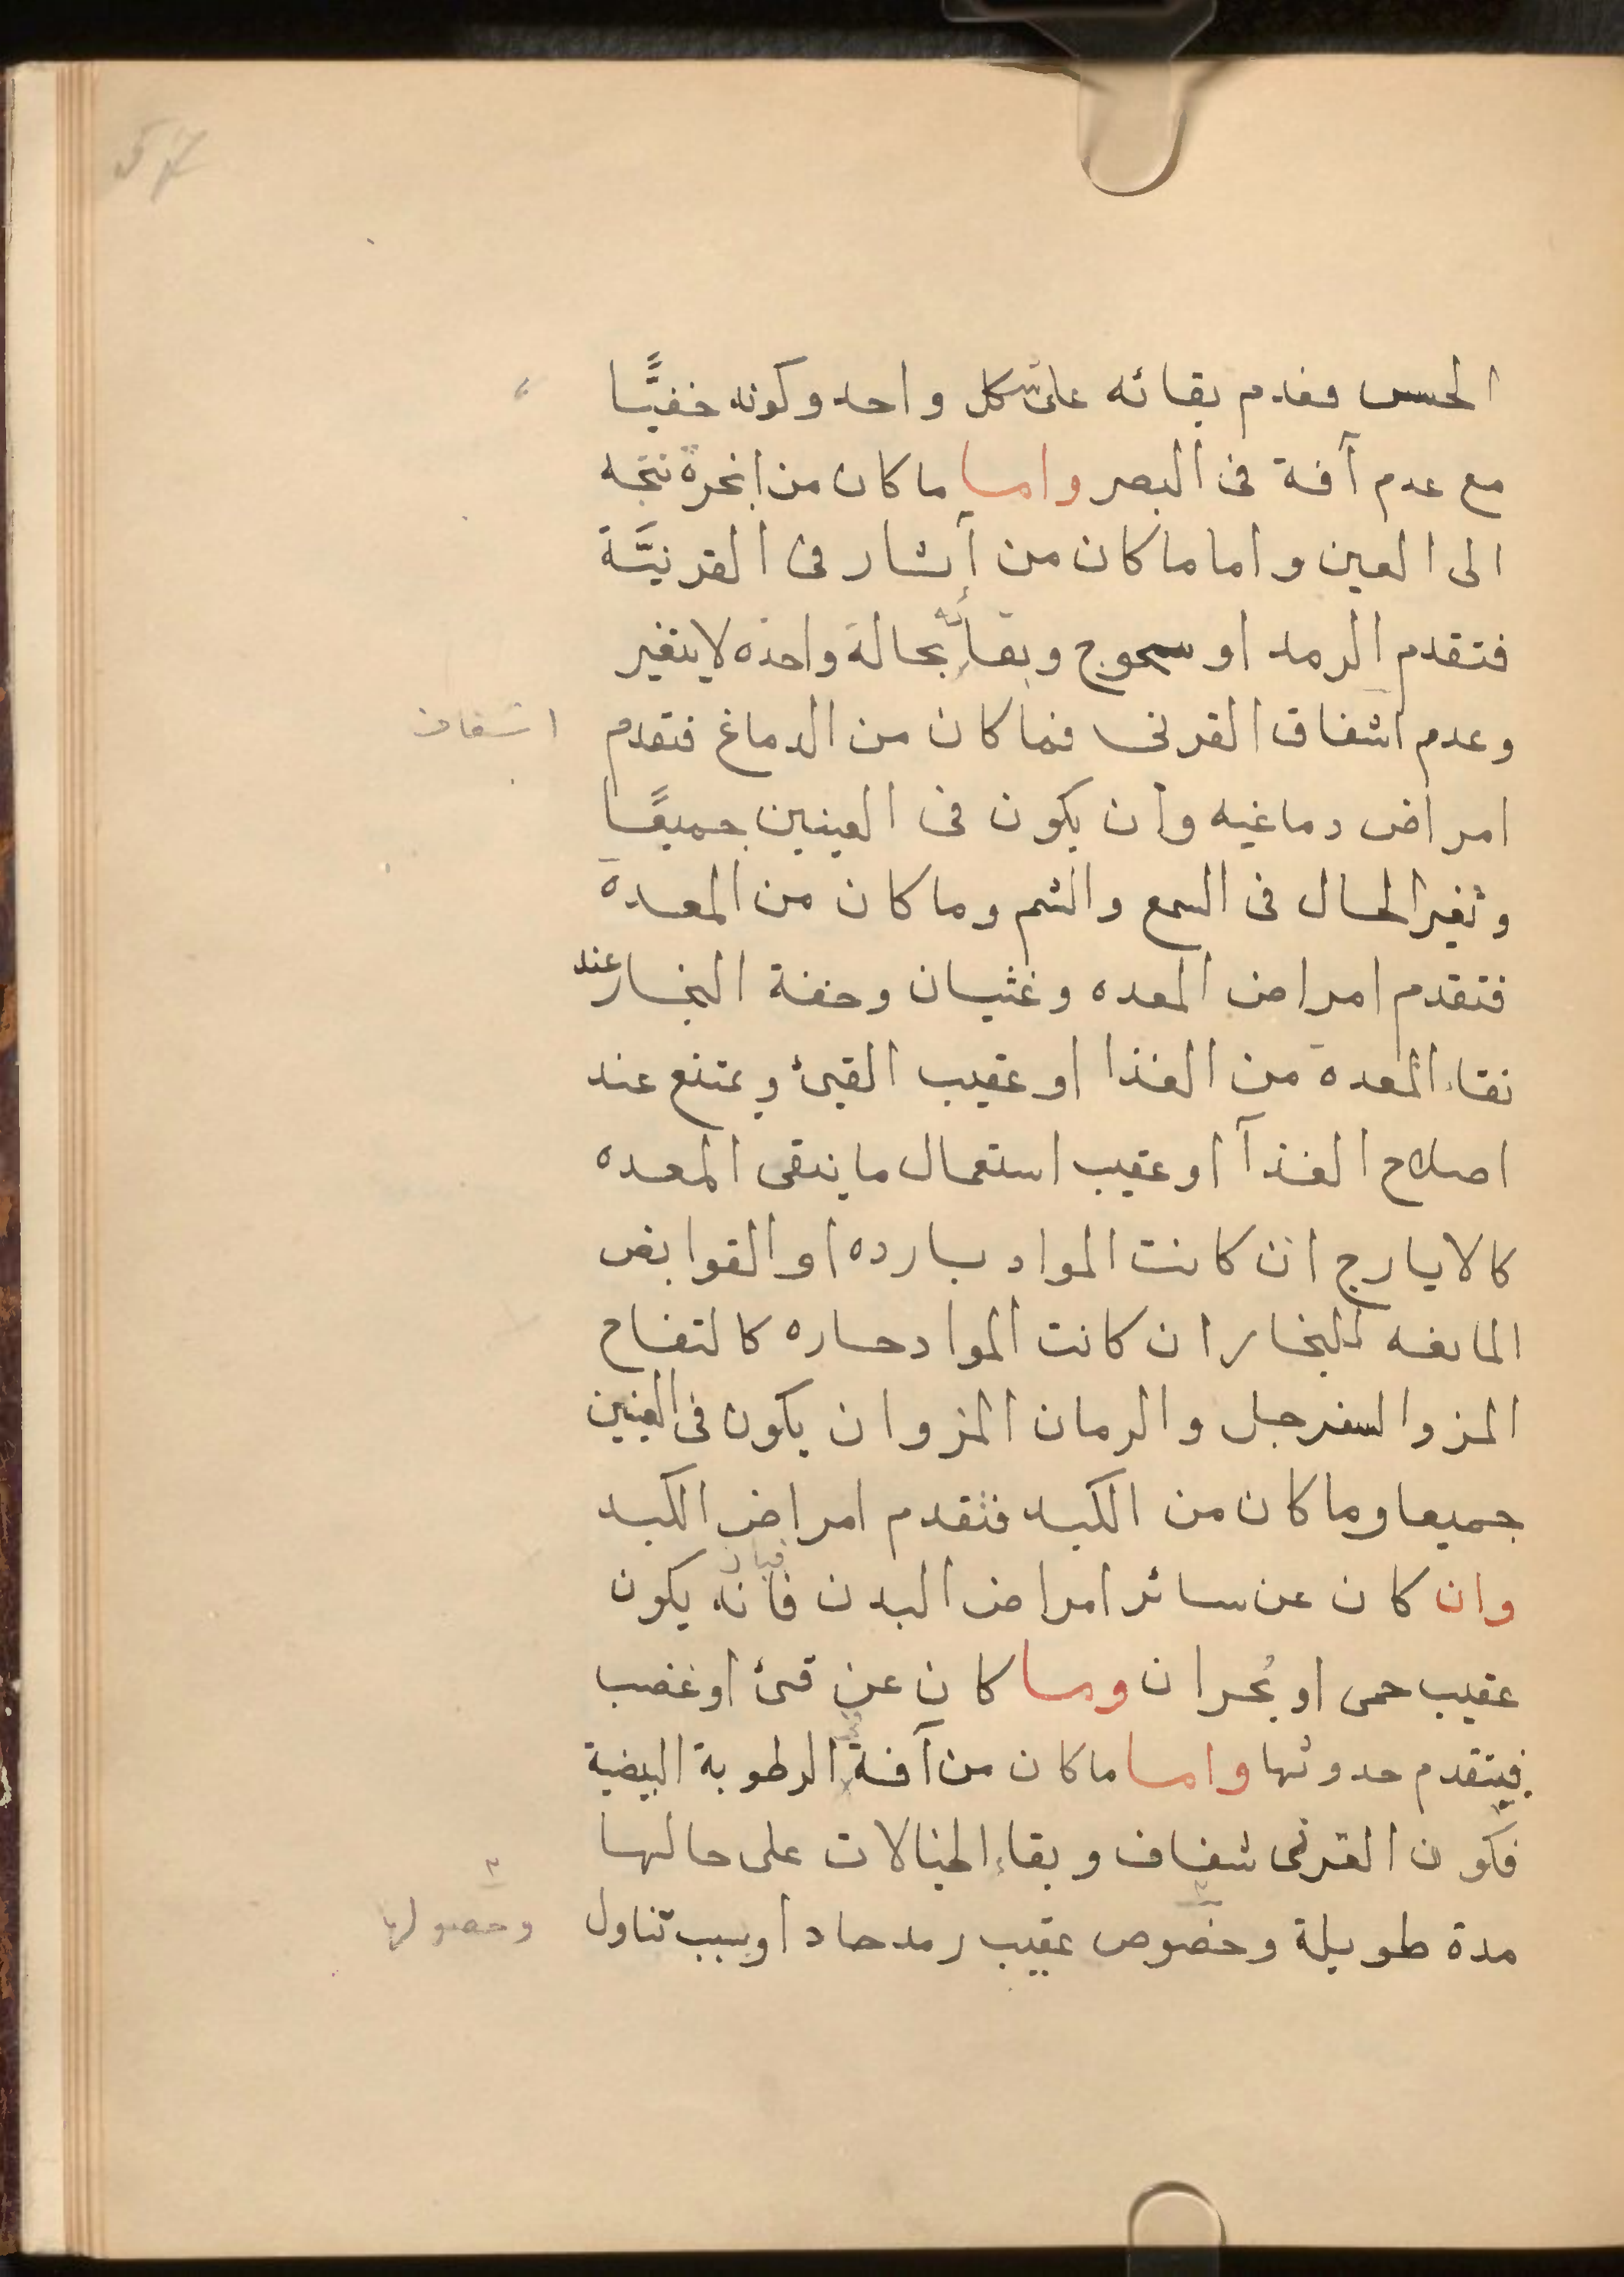 57
الحس فعدم بقائه على شكل واحد وكونه خفيًّا
مع عدم آفة فى البصر واما ما كان من ابخرة نتجه
الى العين واما ما كان من آثار فى القرنيَّة
فتقدم الرمد او سحوج وبقائه بحالة واحده لا يتغير
وعدم اشفاق القرنى فما كان من الدماغ فتقدم
اشفاف
امراض دماغيه وان يكون فى العينين جميعًا
وتغير الحال فى السمع والشم وما كان من المعدة
فتقدم امراض المعده وغثيان وخفة البخار عند
نقاء المعدة من الغذا او عقيب القئ ويمتنع عند
اصلاح الغذآ او عقيب استعمال ما ينقى المعده
كالايارج ان كانت المواد بارده او القوابض
المانعه للبخار ان كانت المواد حاره كالتفاح
المز والسفرجل والرمان المز وان يكون فى العينين
جميعا وما كان من الكبد فتقدم امراض الكبد
وان كان عن سائر امراض البدن فانه يكون
عقيب حمى او بُحران وما كان عن قئ او غضب
فيتقدم حدوثها واما ما كان من آفة الرطوبة البيضية
فكون القرنى شفاف وبقاء الخيالات على حالها
مدة طويلة وخصوص عقيب رمد حاد او بسبب تناول
وحصولها